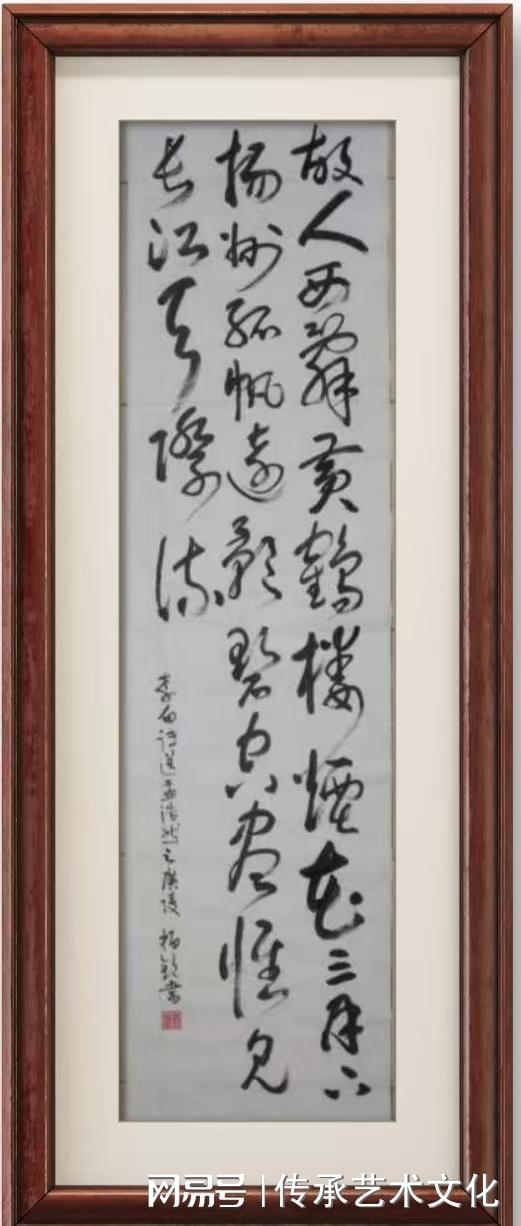 故人西辞黄鹤楼烟花三月下
扬州孤帆远影碧空尽惟见
长江天际流
李白诗送孟浩然之广陵 福钦书
网易号 | 传承艺术文化